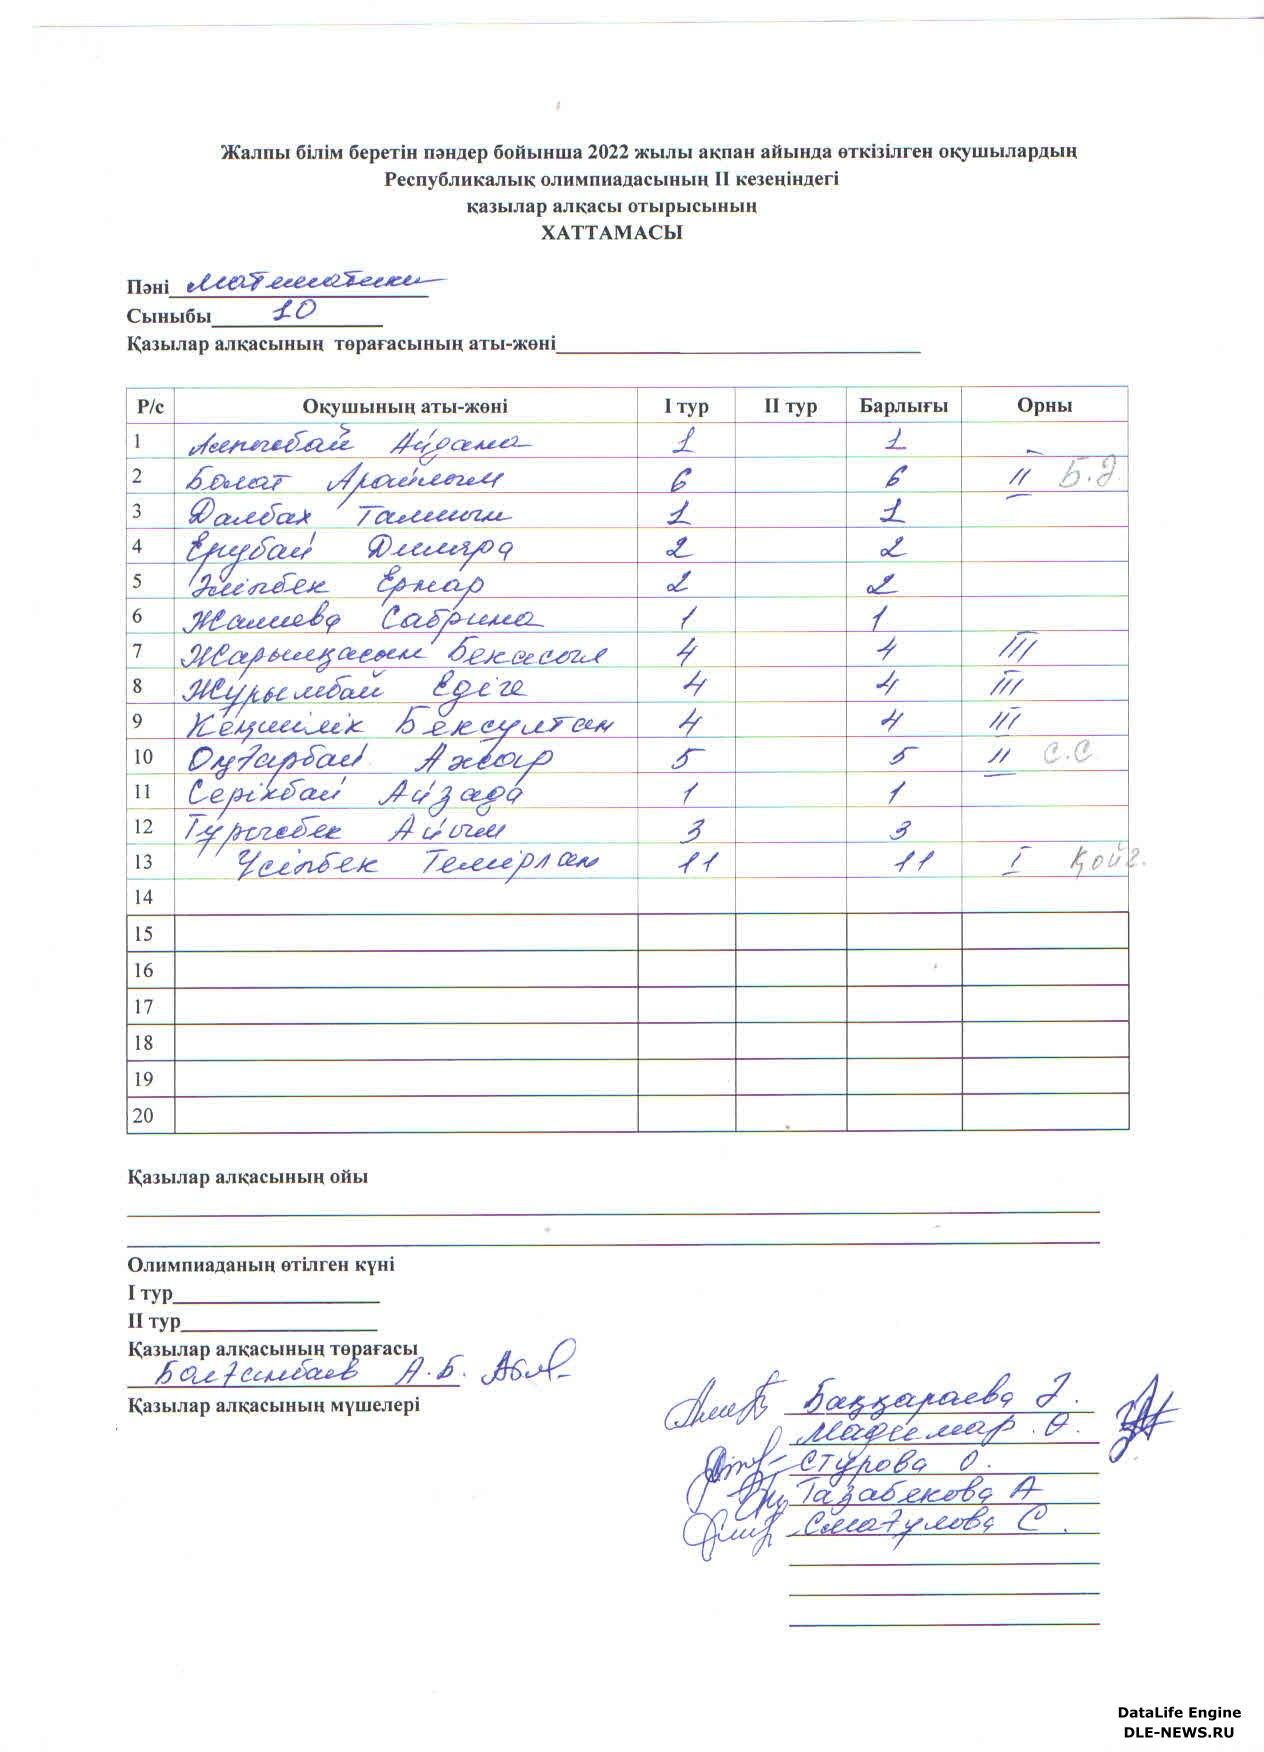 Жалпы білім беретін пәндер бойынша 2022 жылы ақпан айында өткізілген оқушылардың
Республикалық олимпиадасының II кезеңіндегі
қазылар алқасы отырысының
ХАТТАМАСЫ
Пәні Математика
Сыныбы 10
Қазылар алқасының төрағасының аты-жөні
Р/с Оқушының аты-жөні I тур II тур Барлығы Орны
1 Айдана 1 1
2 Болат Арайлым 6 6 II Б.Ә.
3 Далбах Талшын 1 1
4 Ерубай Диляра 2 2
5 Әліпбек Ернар 2 2
6 Жалиева Сабрина 1 1
7 Жарылқасын Бекасыл 4 4 III
8 Жұрымбай Едіге 4 4 III
9 Кеңшілік Бексұлтан 4 4 III
10 Оңғарбай Ажар 5 5 II С.С
11 Серікбай Айзада 1 1
12 Тұрысбек Айым 3 3
13 Үсіпбек Темірлан 11 11 I Қойг.
14
15
16
17
18
19
20
Қазылар алқасының ойы
Олимпиаданың өтілген күні
I тур
II тур
Қазылар алқасының төрағасы
Болғанбаев А.Б.
Қазылар алқасының мүшелері
Баққараева Ә.
Мадияр Ә.
Стурова О.
Тазабекова А
Смағулова С.
DataLife Engine
DLE-NEWS.RU